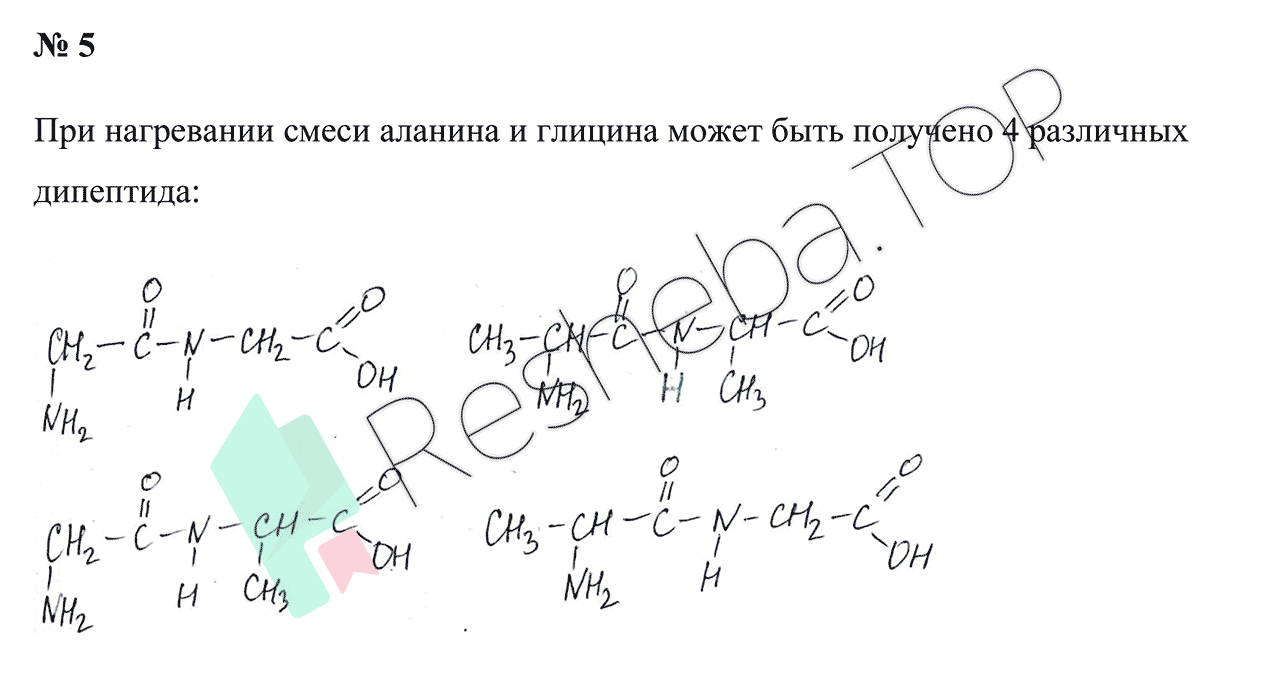 № 5
При нагревании смеси аланина и глицина может быть получено 4 различных
дипептида:
O O
CH₂ – C – N – CH₂ – C
H OH
NH₂
O O
CH₃ – CH – C – N – CH – C
OH
NH₂ H CH₃
O O
CH₂ – C – N – CH – C
OH
NH₂ H CH₃
O O
CH₃ – CH – C – N – CH₂ – C
OH
NH₂ H
Resheba.TOP